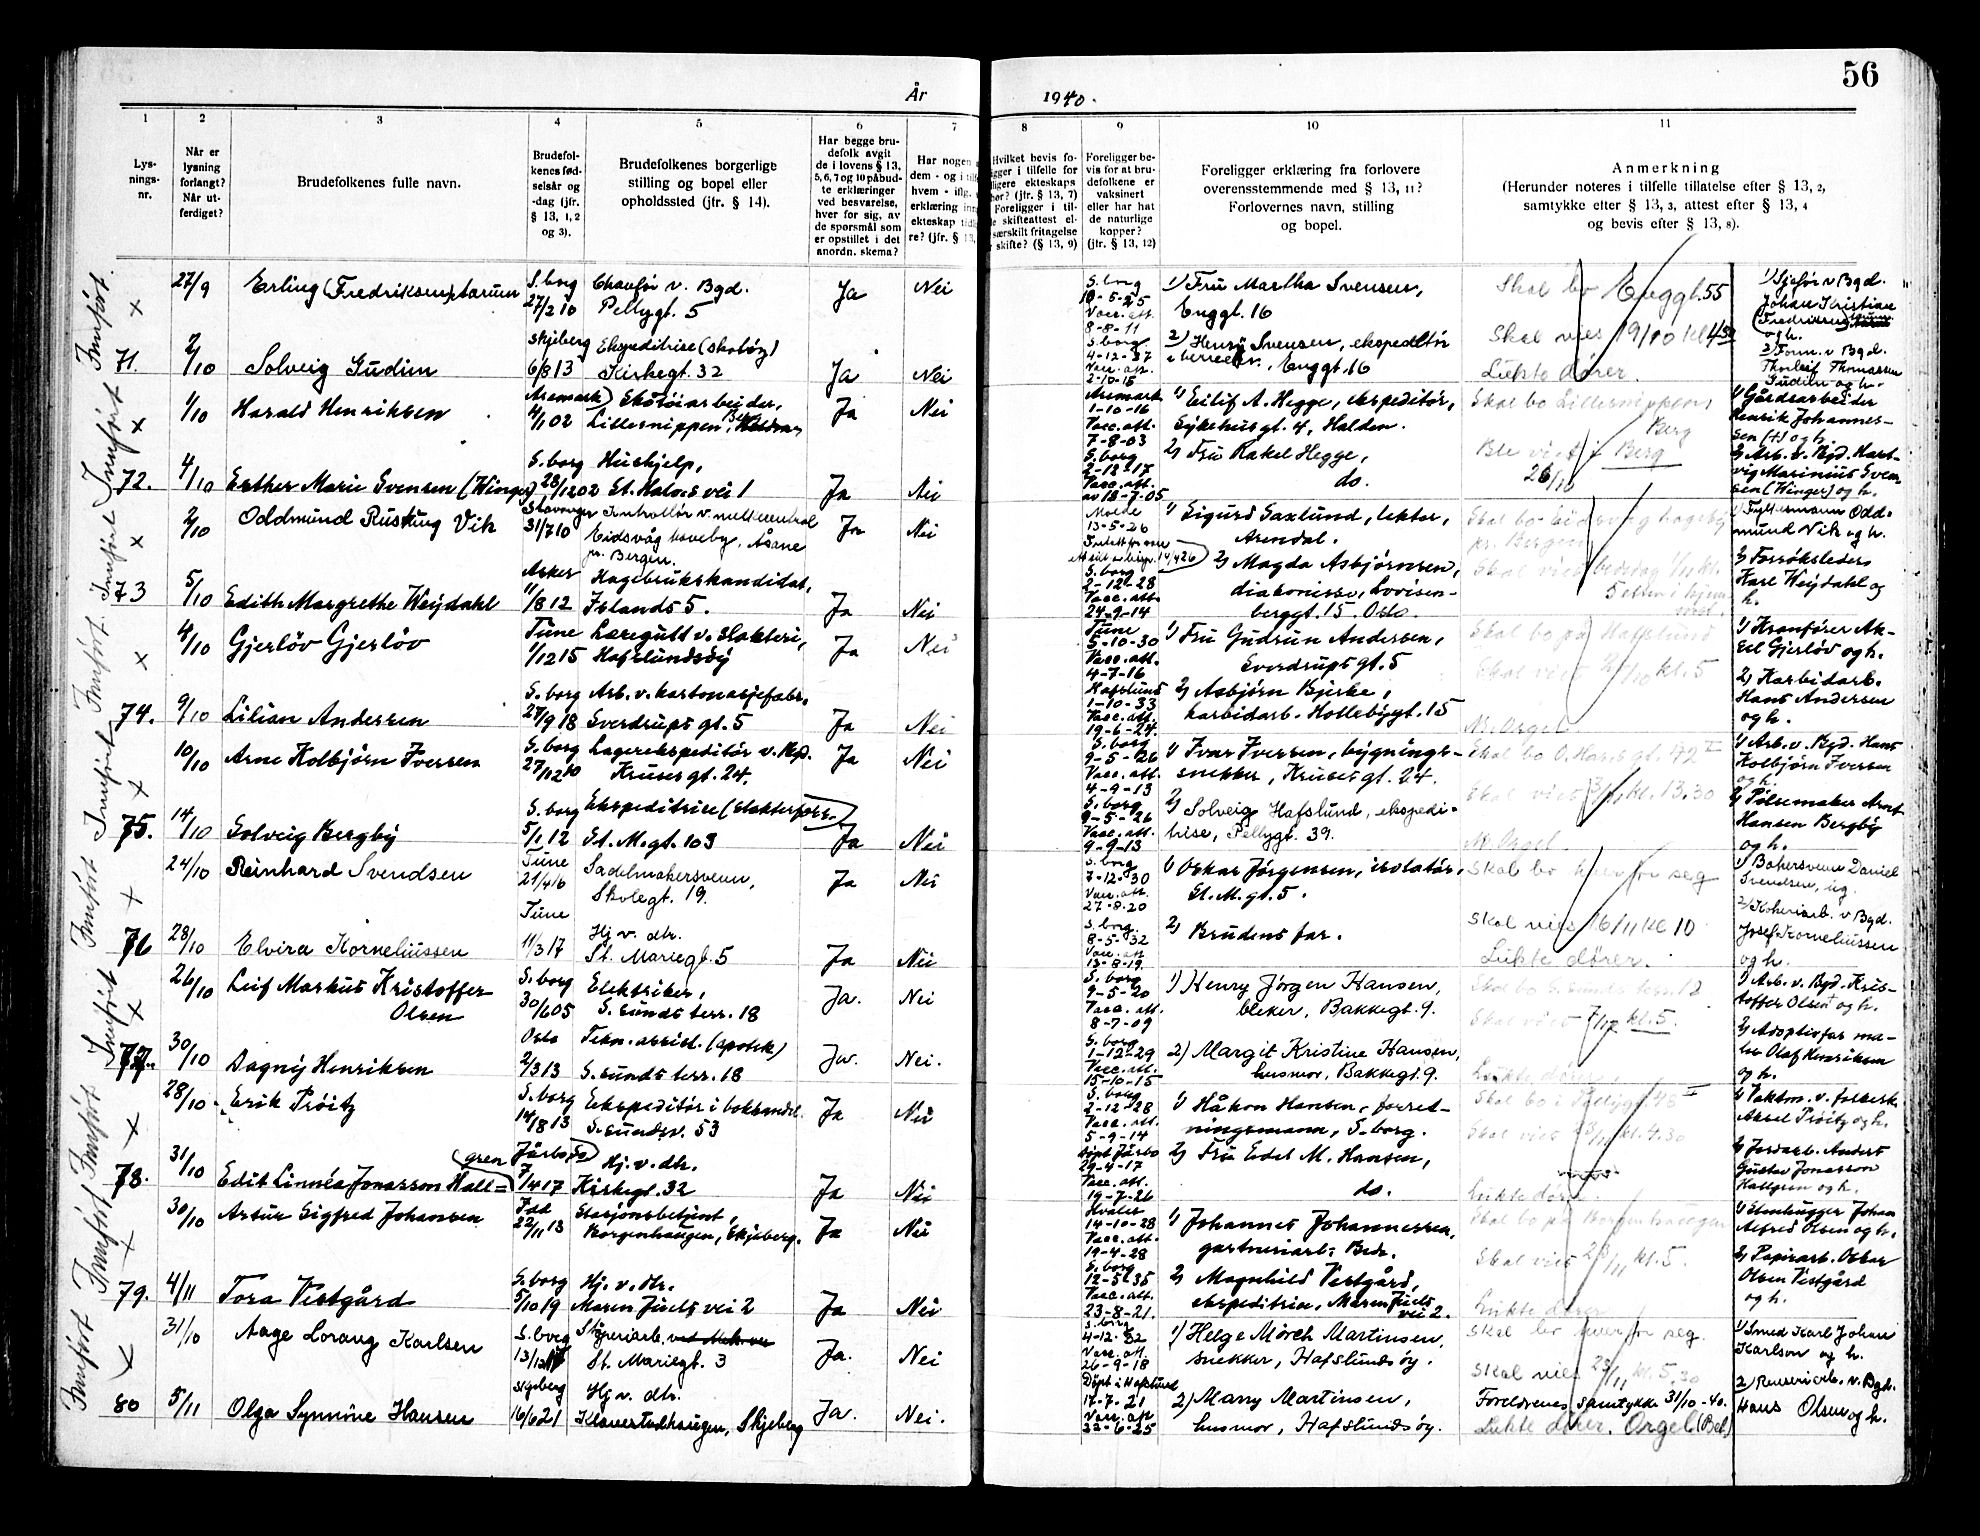 56
År 1940.
1 2 3 4 5 6 7 8 9 10 11
Lysningsnr.
Når er lysning forlangt? Når utferdiget?
Brudefolkenes fulle navn.
Brudefolkenes fødselsår og -dag (jfr. § 13, 1, 2 og 3).
Brudefolkenes borgerlige stilling og bopel eller opholdssted (jfr. § 14).
Har begge brudefolk avgit de i lovens § 13, 5, 6, 7 og 10 påbudte erklæringer ved besvarelse, hver for sig, av de spørsmål som er opstillet i det anordn. skema?
Foreligger bevis for at brudefolkene er vaksinert eller har hat de naturlige kopper? (jfr. § 13, 12)
Foreligger erklæring fra forlovere overensstemmende med § 13, 11? Forlovernes navn, stilling og bopel.
Anmerkning
(Herunder noteres i tilfelle tillatelse efter § 13, 2, samtykke efter § 13, 3, attest efter § 13, 4 og bevis efter § 13, 8).
Innført.
27/9 Erling (Fredriksen) S.borg 27/2 10 Chaufør v. Bgd. Pellygt. 5 Ja Nei
S.borg 10-5-25 Vacc.att. 8-8-11
1) Fru Martha Svensen, Enggt. 16
Skal bo Enggt. 55
1) Sjåfør v Bgd. Johan Kristian og h.
71. 2/10 Solveig Gudim Skjeberg 6/8 13 Ekspeditrise (skotøy) Kirkegt. 32 Ja Nei
S.borg 4-12-37 Vacc.att. 2-10-15
2) Henry Svensen, ekspeditør, Enggt. 16
Skal vies 19/10 kl 4 30
Lukte dører.
2) Form. v Bgd. Thorleif Thomassen Gudim og h.
Innført
1/10 Harald Henriksen Aremark 4/1 02 Skotøiarbeider, Lillesnippen, Berg Ja Nei
Aremark 1-10-16 Vacc.att. 7-8-03
1) Eilif A. Hegge, ekspeditør, Sykehusgt. 4, Halden.
Skal bo Lillesnippen Berg
1) Gårdsarbeider Henrik Johannessen (+) og h.
72. 4/10 Esther Marie Svensen (Winger) S.borg 28/12 02 Hushjelp, St. Halv.s vei 1 Ja Nei
S.borg 2-12-17 Vacc.att. av 18-7-05
2) Fru Rakel Hegge, do.
Ble viet i Berg 26/10
2) Arb. v. Bgd. Hartvig Marinius Svensen (Winger) og h.
Innført
2/10 Oddmund Rustung Vik Stavanger 31/7 10 Kontrollør v. melkecentral Eidsvåg haveby, Åsane pr. Bergen. Ja Nei
Molde 13-5-26
1) Sigurd Saxlund, lektor, Arendal.
Skal bo Eidsvåg hageby pr. Bergen
1) Fyllermann Oddmund Vik og h.
73 5/10 Edith Margrethe Weydahl Asker 11/8 12 Hagebrukskandidat, Islands 5. Ja Nei
S.borg 2-12-28 Vacc.att. 24-9-14
2) Magda Asbjørnsen, diakonisse, Lovisenberggt. 15. Oslo.
2) Forsøksleder Karl Weydahl og h.
Innført.
4/10 Gjerløv Gjerløv Tune 1/12 15 Læregutt v. slakteri, Hafslundsøy Ja Nei
Tune 5-10-30 Vacc.att. 4-7-16
1) Fru Gudrun Andersen, Sverdrups gt. 5
Skal bo på Hafslund
1) Kranfører Aksel Gjerløv og h.
74. 9/10 Lilian Andersen S.borg 27/9 18 Arb. v. kartonasjefabr. Sverdrups gt. 5 Ja Nei
Hafslund 1-10-33 Vacc.att. 19-6-24
2) Asbjørn Bjerke, karbidarb. Hollebygt. 15
M. Orgel
2) Karbidarb. Hans Andersen og h.
Innført
10/10 Arne Kolbjørn Iversen S.borg 27/12 10 Lagerekspeditør v. Kruses gt. 24. Ja Nei
S.borg 9-5-26 Vacc.att. 4-9-13
1) Ivar Iversen, bygningssnekker, Kruses gt. 24.
Skal bo O. Har.s gt. 72 II
Skal vies kl. 13.30
1) Arb. v. Bgd. Hans Kolbjørn Iversen og h.
75. 14/10 Solveig Bergby S.borg 5/1 12 Ekspeditrise (slakterforr.) St. M.gt. 103 Ja Nei
S.borg 9-5-26 Vacc.att. 9-9-13
2) Solveig Hafslund, ekspeditrise, Pellygt. 39.
M. Orgel
2) Pølsemaker Arnt Hansen Bergby og h.
Innført
24/10 Reinhard Svendsen Tune 21/4 16 Sadelmakersvenn, Skolegt. 19. Ja Nei
S.borg 7-12-30 Vacc.att. 27-8-20
1) Oskar Jörgensen, isolatør, St. M. gt. 5.
Skal bo hver for seg
1) Bakersvenn Daniel Svendsen, ug.
76 28/10 Elvira Korneliussen Tune 11/3 17 Hj. v. dtr. St. Mariegt. 5 Ja Nei
S.borg 8-5-32 Vacc.att. 13-8-19.
2) Brudens far.
Skal vies 16/11 kl 10
Lukte dører.
2) Kokeriarb. v Bgd. Josef Korneliussen og h.
Innført
26/10 Leif Markus Kristoffer Olsen S.borg 30/6 05 Elektriker, S. sunds terr. 18 Ja. Nei
S.borg 9-5-20 Vacc.att. 8-7-09
1) Henry Jörgen Hansen, bleker, Bakkegt. 9.
Skal bo S. sunds terr. 18
Skal vies 7/12 kl. 5.
1) Arb. v. Bgd. Kristoffer Olsen og h.
77. 30/10 Dagny Henriksen Oslo 2/3 13 Tekn. assist. (apotek) S. sunds terr. 18 Ja. Nei.
S.borg 1-12-29 Vacc.att. 15-10-15
2) Margit Kristine Hansen, husmor, Bakkegt. 9.
Lukte dører
2) Adoptivfar maler Olaf Henriksen og h.
Innført
28/10 Erik Tröitz S.borg 14/8 13 Ekspeditør i bokhandel. S.sundsv. 53 Ja Nei
S.borg 2-12-28 Vacc.att. 5-9-14
1) Håkon Hansen, forretningsmann, S.borg.
Skal bo i Pellygt. 48 II
Skal vies 23/11 kl. 4.30
1) Vaktm. v. folkesk. Aksel Tröitz og h.
78. 31/10 Edit Linnéa Jonasson Hallgren Järbo 7/4 17 Hj. v. dtr. Kirkegt. 32 Ja Nei
Döpt Järbo 29-4-17 Vacc.att. 19-7-26
2) Fru Edel M. Hansen, do.
Lukte dører
2) Jordarb. Anders Gustav Jonasson Hallgren og h.
Innført
30/10 Artur Sigfred Johansen Idd 22/11 13 Stasjonsbetjent, Borgenhaugen, Skjeberg. Ja Nei
Hvaler 14-10-28 Vacc.att. 19-4-28
1) Johannes Johannessen, gartneriarb. Bdr.
Skal bo på Borgenhaugen
Skal vies 23/11 kl. 5.
1) Stenhugger Johan Alfred Olsen og h.
79. 4/11 Tora Vestgård S.borg 5/10 19 Hj. v. dtr. Maren Juels vei 2 Ja Nei
S.borg 12-5-35 Vacc.att. 23-8-21.
2) Magnhild Vestgård, ekspeditrise, Maren Juels vei 2.
Lukte dører
2) Papirarb. Oskar Olsen Vestgård og h.
Innført
31/10 Aage Lorang Karlsen S.borg St. Mariegt. 3 Ja. Nei
S.borg 4-12-32 Vacc.att. 26-9-18
1) Helge Mörch Martinsen, snekker, Hafslundsøy.
Skal bo hver for seg.
Skal vies 23/11 kl. 5.30
1) Smed Karl Johan Karlson og h.
80 5/11 Olga Synnöve Hansen Skjeberg 16/6 21 Hj. v. dtr. Klavestadhaugen, Skjeberg Ja. Nei.
Döpt i Hafslund 17-7-21 Vacc.att 22-6-25
2) Marry Martinsen, husmor, Hafslundsøy.
Foreldrenes samtykke 31/10-40.
Lukte dører. Orgel (Bet.)
2) Renseriarb. v. Bgd. Hans Olsen og h.